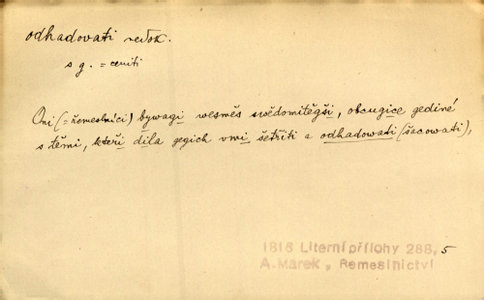 odhadovati nedok.
s g. = ceniti
Oni (= řemeslníci) bywagi wesměs swědomitěgši, obcugice gediné
s těmi, kteři dila gegich umi šetřiti a odhadowati (šacowati),
1816 Literní přílohy 288, 5
A. Marek, Řemeslnictví